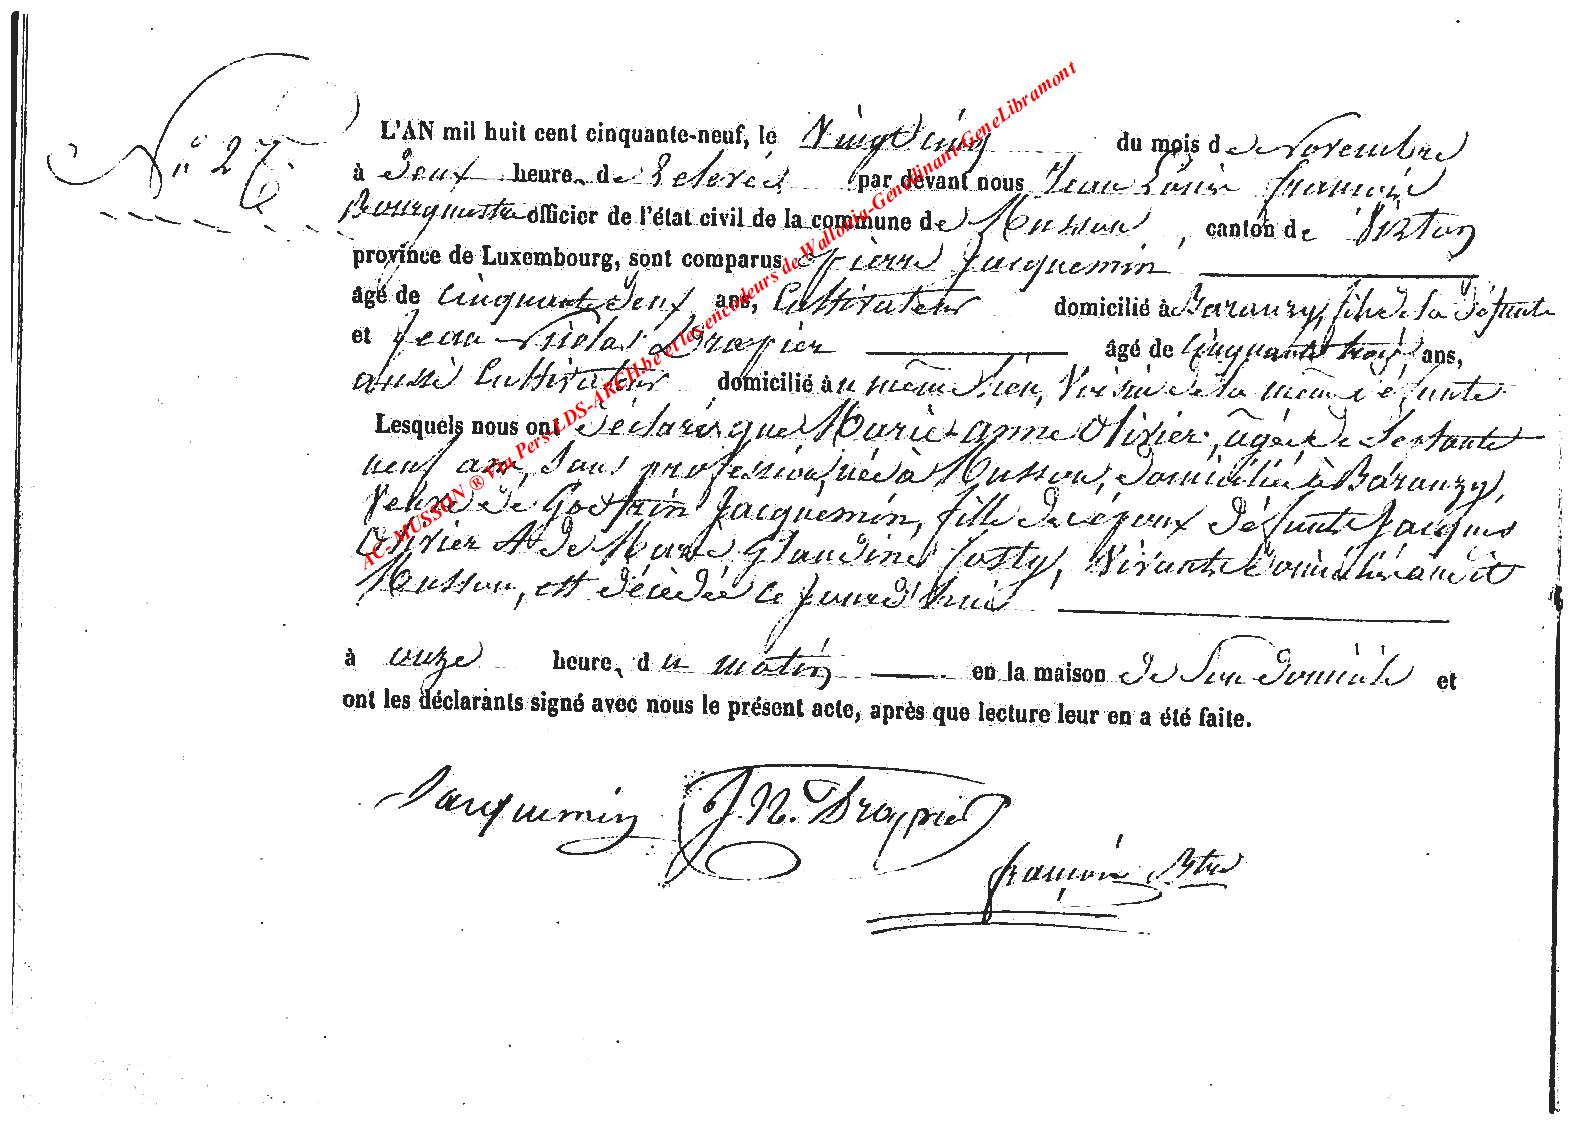 N° 27.
L'AN mil huit cent cinquante-neuf, le Vingt cinq du mois de Novembre
à deux heure, de Relevée par devant nous Jean Louis François
Bourgmestre officier de l'état civil de la commune de Musson, canton de Virton
province de Luxembourg, sont comparus Pierre Jacquemin
âgé de cinquante deux ans, Cultivateur domicilié à Baranzy, fils de la défunte
et Jean Nicolas Drapier âgé de Cinquante trois ans,
aussi Cultivateur domicilié au même lieu, Voisin de la même défunte
Lesquels nous ont déclaré que Marie-anne Olivier, agée de Septante
neuf ans, sans profession, née à Musson, domiciliée à Baranzy,
Veuve de Jacquemin, fille des époux défunts Jacques
Olivier et de Marie Glaudine, Vivants domiciliés audit
Musson, est décédée ce jourd'hui
à onze heure, du matin en la maison de Son domicile et
ont les déclarants signé avec nous le présent acte, après que lecture leur en a été faite.
Jacquemin J. N. Drapier
françois Btre
AC-MUSSON ® Via Pers LDS-ARCH.be et les encodeurs de Wallonia-Gendinant-GeneLibramont